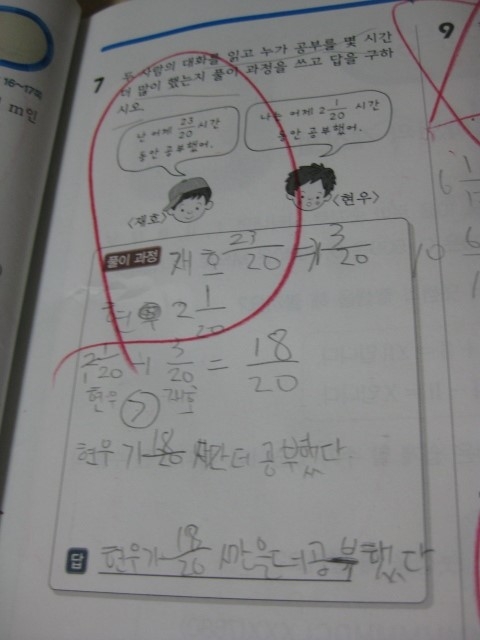 16~17쪽
m인
7 두 사람의 대화를 읽고 누가 공부를 몇 시간
더 많이 했는지 풀이 과정을 쓰고 답을 구하
시오.
난 어제 23/20 시간
동안 공부했어.
나는 어제 2 1/20 시간
동안 공부했어.
<재호>
<현우>
풀이 과정
재호 23/20 → 1 3/20
현우 2 1/20
2 1/20 - 1 3/20 = 18/20
현우 > 재호
현우가 18/20 시간 더 공부했다
답 현우가 18/20 시간 더 공부했다
9
6
10